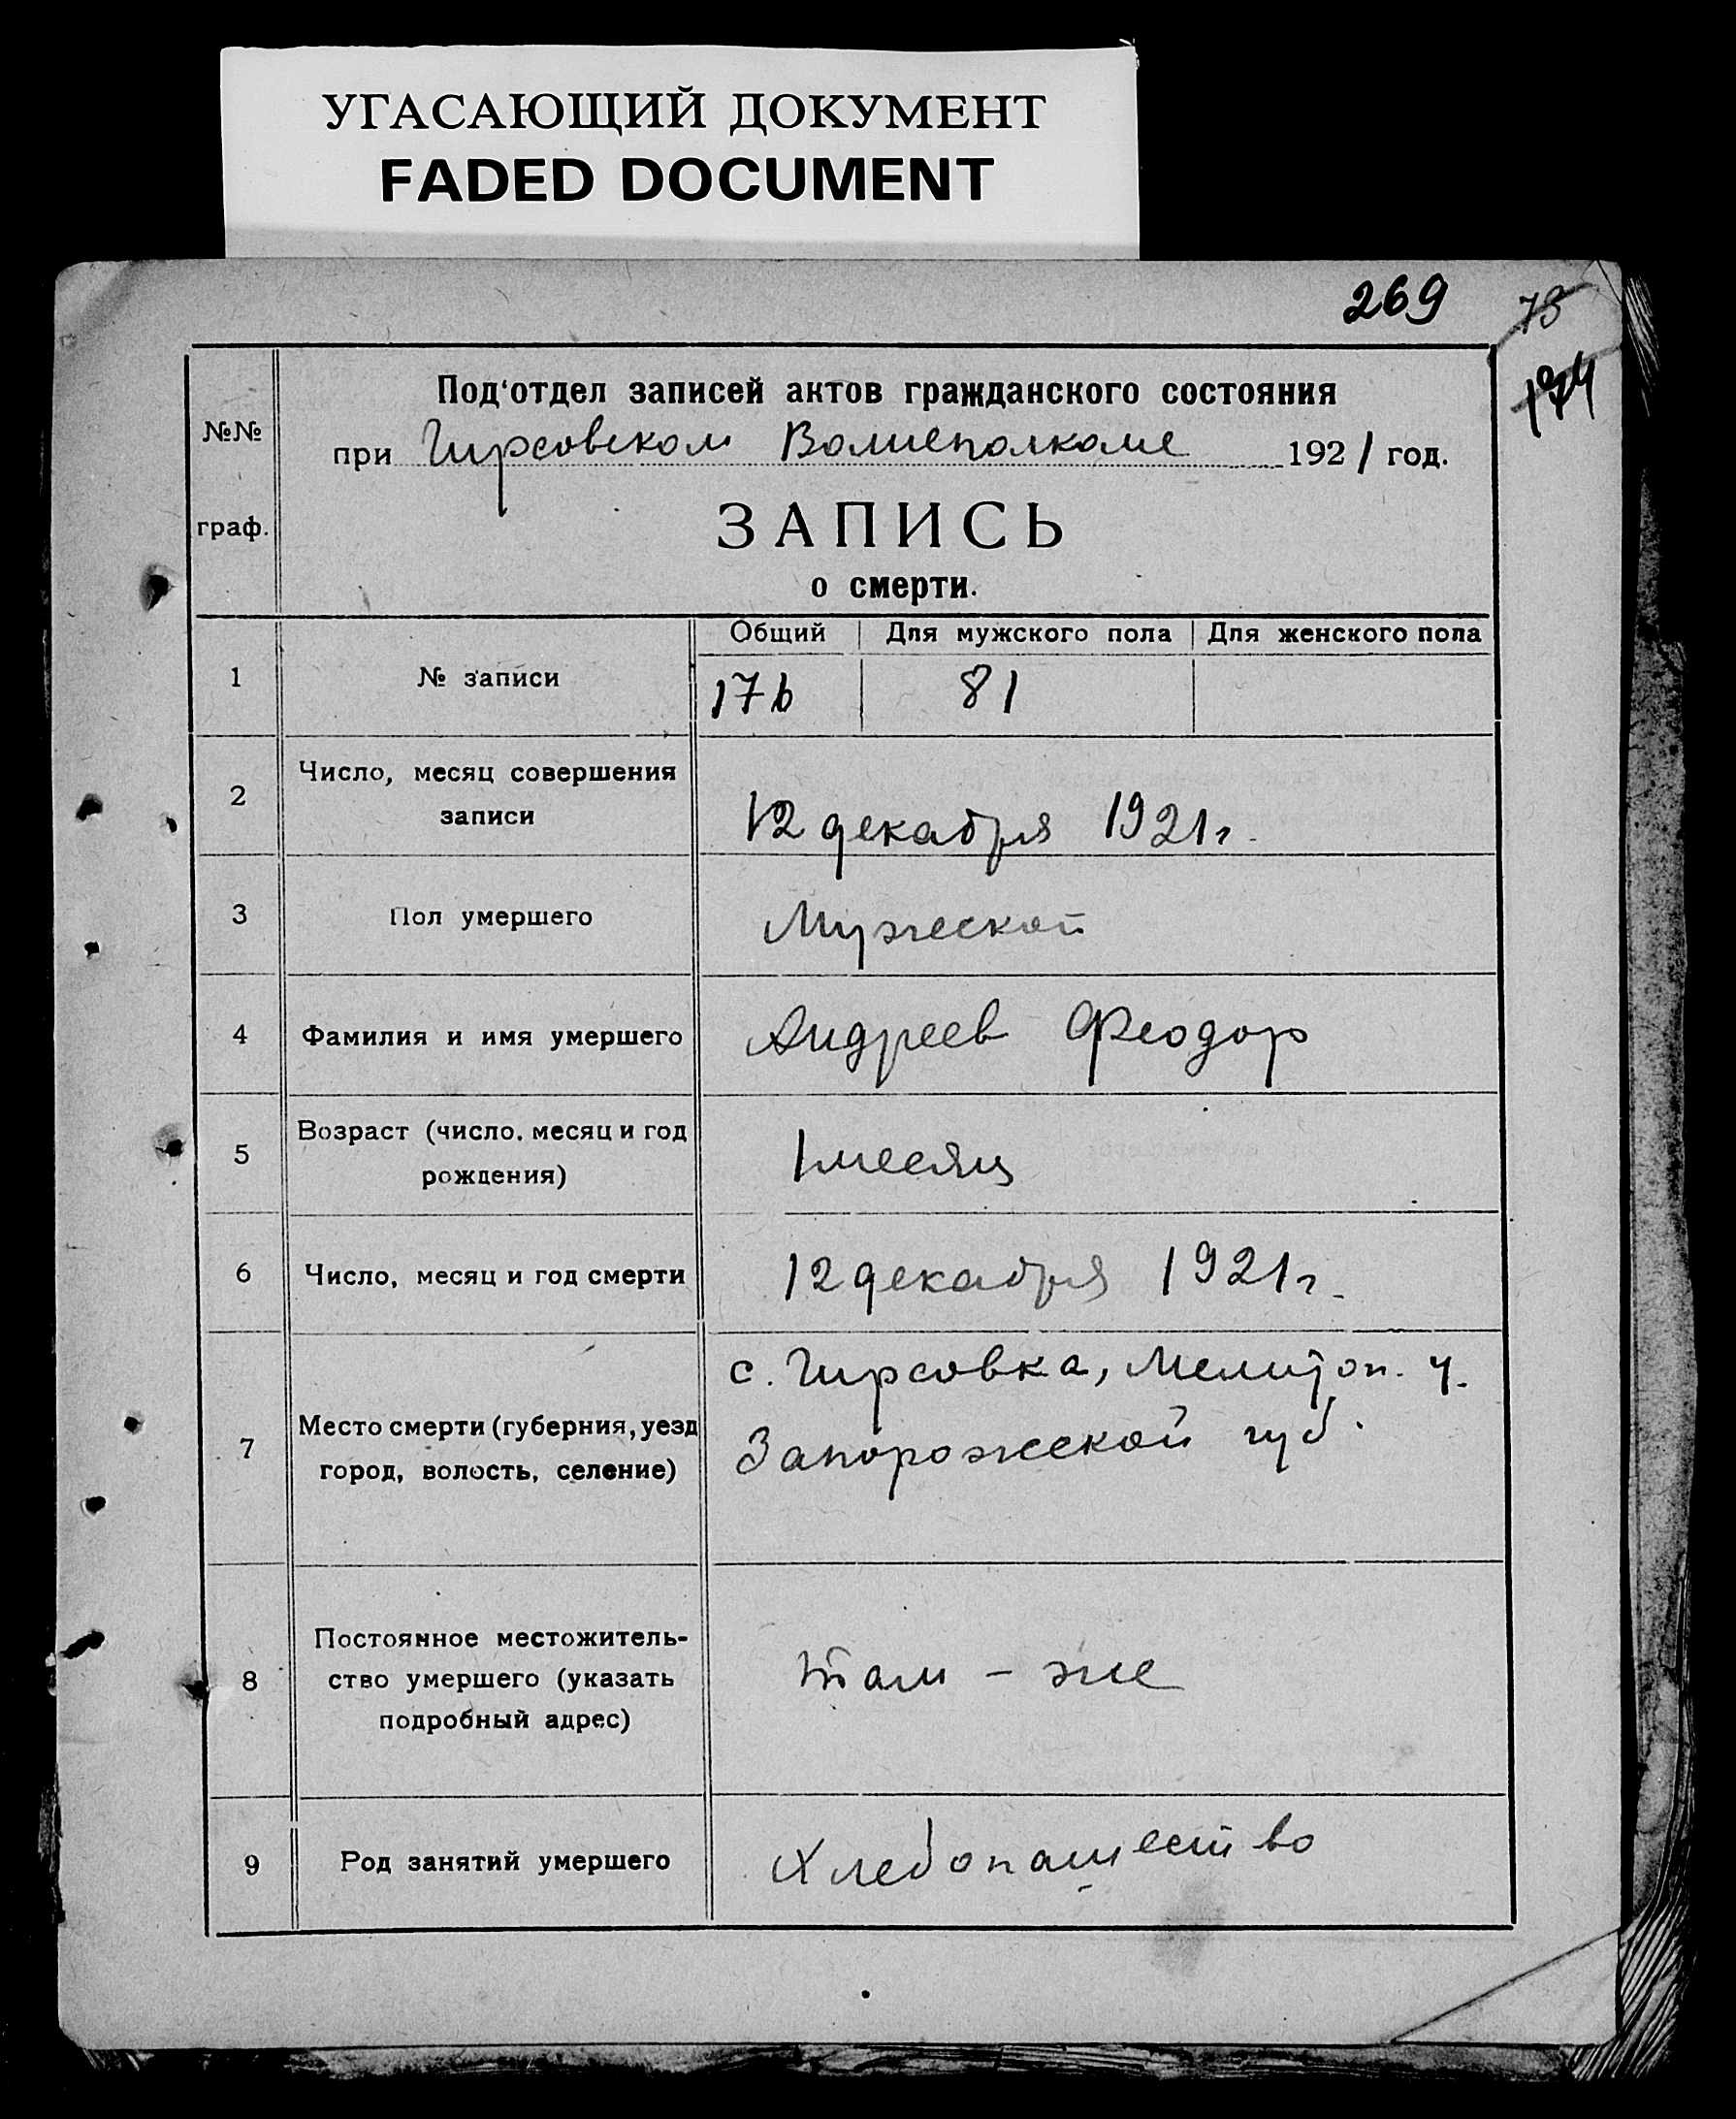 УГАСАЮЩИЙ ДОКУМЕНТ
FADED DOCUMENT
269
73
174
№№
граф.
Под'отдел записей актов гражданского состояния
при Гирсовском Волисполкоме 1921 год.
ЗАПИСЬ
о смерти.
Общий Для мужского пола Для женского пола
1 № записи 176 81
2 Число, месяц совершения
записи
12 декабря 1921 г.
3 Пол умершего Мужеской
4 Фамилия и имя умершего Андреев Феодор
5 Возраст (число, месяц и год
рождения)
1 месяц
6 Число, месяц и год смерти 12 декабря 1921 г.
7 Место смерти (губерния, уезд
город, волость, селение)
с. Гирсовка, Мелитоп. у.
Запорожской губ.
8 Постоянное местожитель-
ство умершего (указать
подробный адрес)
там - же
9 Род занятий умершего Хлебопашество